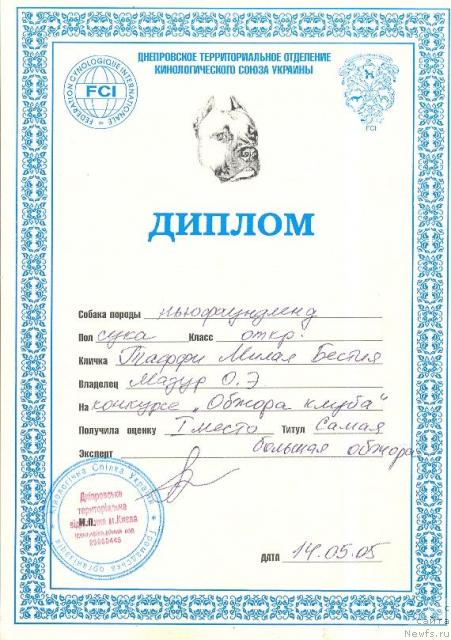 ДНЕПРОВСКОЕ ТЕРРИТОРИАЛЬНОЕ ОТДЕЛЕНИЕ
КИНОЛОГИЧЕСКОГО СОЮЗА УКРАИНЫ
FEDERATION CYNOLOGIQUE INTERNATIONALE
FCI
FCI
ДИПЛОМ
Собака породы ньюфаундленд
Пол сука Класс откр.
Кличка Таффи Милая Бестия
Владелец Мазур О.Э
На конкурсе „Обжора клуба"
Получила оценку I место Титул Самая
большая обжора
Эксперт
Кінологічна Спілка України
Громадська організація
Дніпровське
територіальне
м.Києва
М.П.
ДАТА 14.05.05
сайта
Newfs.ru